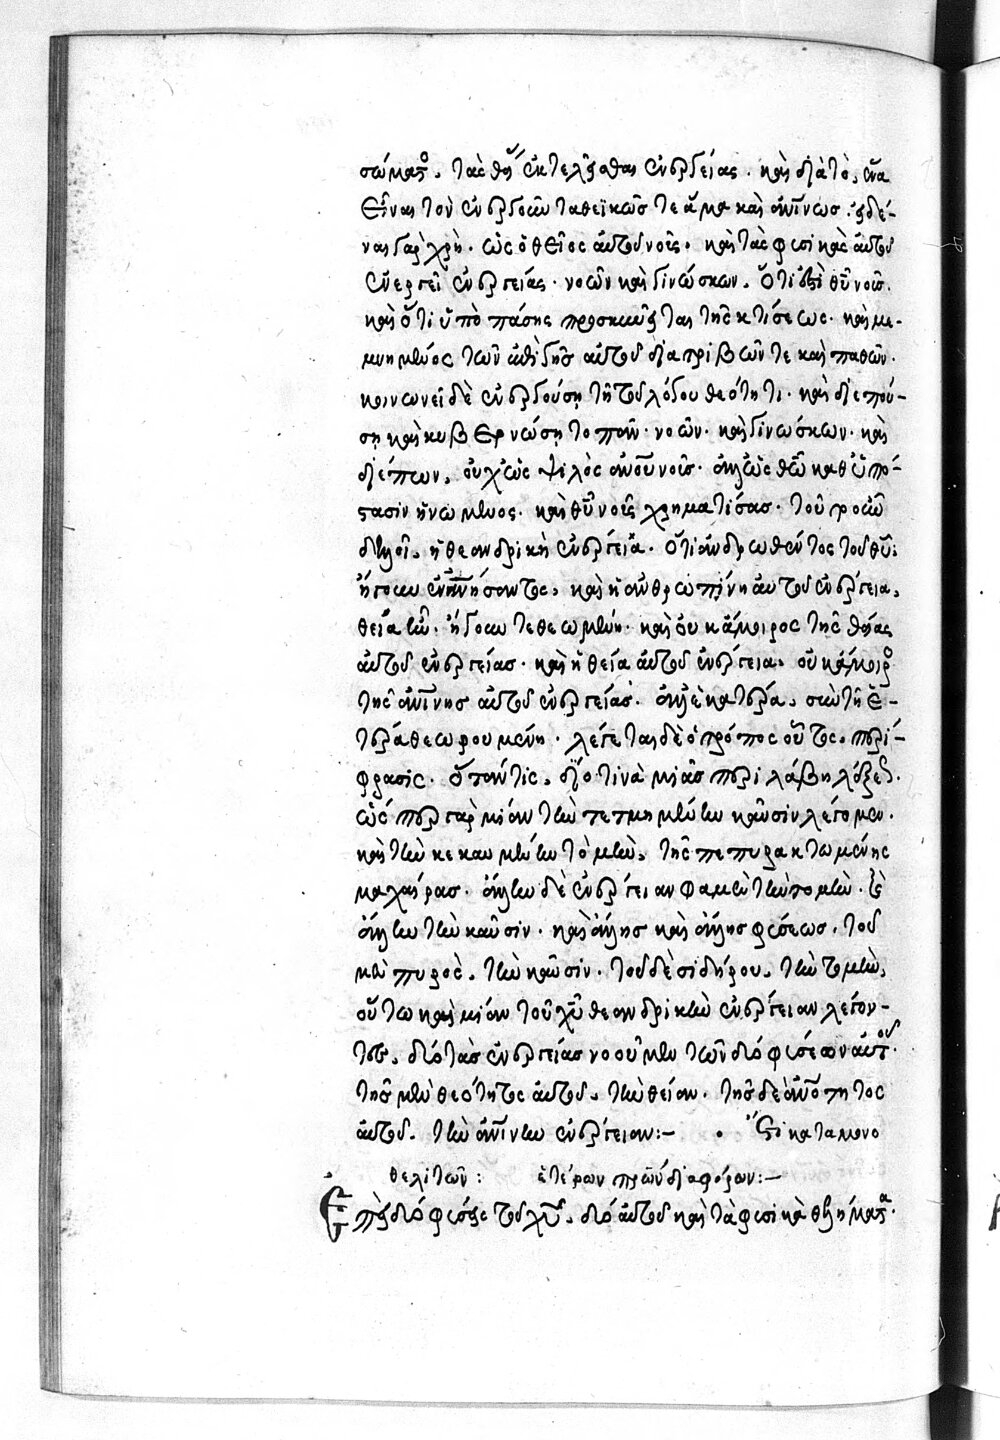 σώματος. τὰς θείας ἐκτελεῖσθαι ἐνεργείας. καὶ διὰ τὸ, ἕνα
εἶναι τὸν ἐνεργοῦντα θεϊκῶς τε ἅμα καὶ ἀνίνως. εἰδέ-
ναι γὰρ χρὴ. ὡς ὁ θεῖος αὐτοῦ νοῦς. καὶ τὰς φυσικὰς αὐτοῦ
ἐνεργεῖ ἐνεργείας. νοῶν καὶ γινώσκων. ὅτι ἐστὶ θυ νοῦς.
καὶ ὅτι ὑπὸ πάσης προσκυνεῖται τῆς κτίσεως. καὶ με-
μνημένος τῶν ἐπὶ γῆς αὐτοῦ διατριβῶν τε καὶ παθῶν.
κοινωνεῖ δὲ ἐνεργούσῃ τῇ τοῦ λόγου θεότητι. καὶ διεπού-
σῃ καὶ κυβερνώσῃ τὸ πᾶν. νοῶν. καὶ γινώσκων. καὶ
διέπων. οὐχ ὡς ψιλὸς ἀνου νοῦς. ἀλλ' ὡς θῶ καθ' ὑπό-
στασιν ἡνωμένος. καὶ θυ νοῦς χρηματίσας. τοῦτο οὖν
δηλοῖ. ἡ θεανδρικὴ ἐνέργεια. ὅτι ἀνδρωθέντος τοῦ θυ.
ἤγουν ἐνανήσαντος. καὶ ἡ ἀνθρωπίνη αὐτοῦ ἐνέργεια.
θεία ἦν. ἤγουν τεθεωμένη. καὶ οὐκ ἄμοιρος τῆς θείας
αὐτοῦ ἐνεργείας. καὶ ἡ θεία αὐτοῦ ἐνέργεια. οὐκ ἄμοιρος
τῆς ἀνίνης αὐτοῦ ἐνεργείας. ἀλλ' ἑκατέρα. σὺν τῇ ἑ-
τέρα θεωρουμένη. λέγεται δὲ ὁ τρόπος οὗτος. περί-
φρασις. ὅταν τις. δύο τινὰ μιᾶς περιλάβῃ λέξεως.
ὥσπερ γὰρ μίαν τὴν τετμημένην καῦσιν λέγομεν.
καὶ τὴν κεκαυμένην τομὴν. τῆς πεπυρακτωμένης
μαχαίρας. ἄλλην δὲ ἐνέργειαν φαμεν τὴν τομὴν. καὶ
ἄλλην τὴν καῦσιν. καὶ ἄλλης καὶ ἄλλης φύσεως. τοῦ
μὲν πυρὸς. τὴν καῦσιν. τοῦ δὲ σιδήρου. τὴν τομὴν.
οὕτω καὶ μίαν τοῦ χυ θεανδρικὴν ἐνέργειαν λέγον-
τες. δύο τὰς ἐνεργείας νοοῦμεν τῶν δύο φύσεων αὐτοῦ.
τῆς μὲν θεότητος αὐτοῦ. τὴν θείαν. τῆς δὲ ἀνότητος
αὐτοῦ. τὴν ἀνίνην ἐνέργειαν:— . Ἔτι κατα μονο
θελιτῶν: ἑτέρων πρῶν διαφόρων:—
Ἐπεὶ δύο φύσεις τοῦ χυ. δύο αὐτοῦ καὶ τὰ φυσικὰ θελήματα.